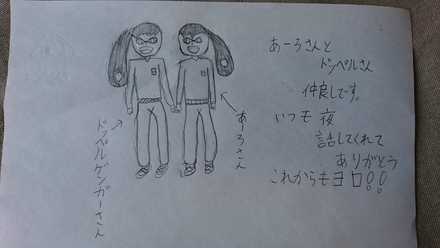 あーろさんと
ドッペルさん
仲良しです。
いつも夜
話してくれて
ありがとう
これからもヨロ!!
あーろさん
ドッペルゲンガーさん